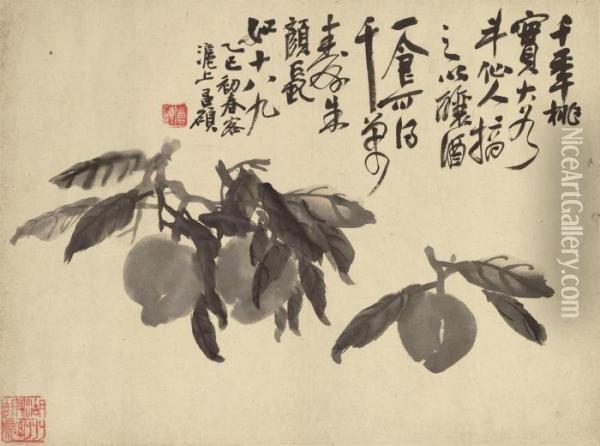 千年桃
實大如
斗仙人摘
之以釀酒
一食可得
千萬
壽朱
顏長
如十八九
乙巳初春客
滬上昌碩
NiceArtGallery.com